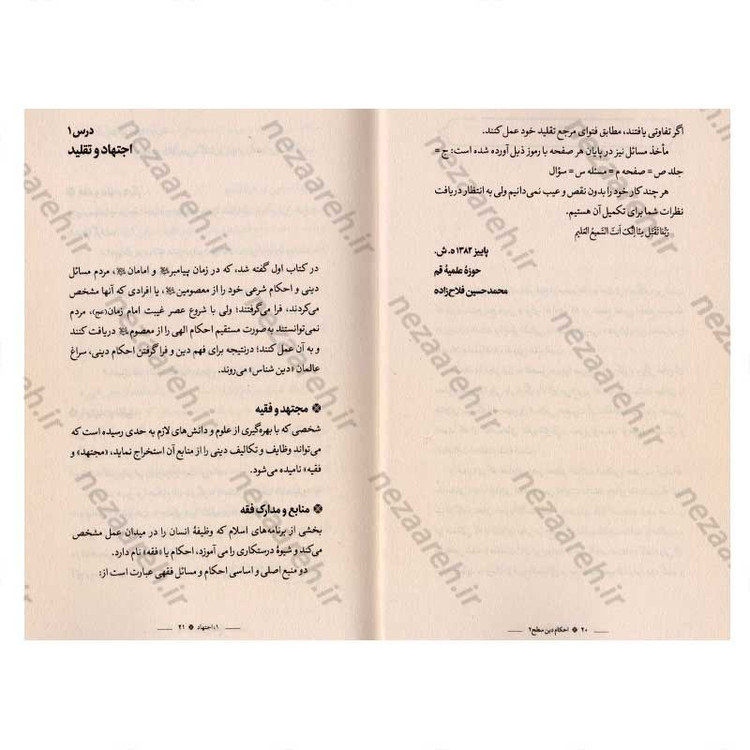 اگر تفاوتی یافتند، مطابق فتوای مرجع تقلید خود عمل کنند.
مأخذ مسائل نیز در پایان هر صفحه با رموز ذیل آورده شده است: ج =
جلد ص = صفحه م = مسئله س = سؤال
هر چند کار خود را بدون نقص و عیب نمی‌دانیم ولی به انتظار دریافت
نظرات شما برای تکمیل آن هستیم.
رَبَّنَا تَقَبَّل مِنَّا اِنَّکَ اَنتَ السَّمیعُ العَلیم
پاییز ۱۳۸۲ ه‍. ش.
حوزهٔ علمیهٔ قم
محمدحسین فلاح‌زاده
۲۰ ❋ احکام دین سطح ۲
درس ۱
اجتهاد و تقلید
در کتاب اول گفته شد، که در زمان پیامبرﷺ و امامان، مردم مسائل
دینی و احکام شرعی خود را از معصومین، یا افرادی که آنها مشخص
می‌کردند، فرا می‌گرفتند؛ ولی با شروع عصر غیبت امام زمان(عج)، مردم
نمی‌توانستند به صورت مستقیم احکام الهی را از معصوم دریافت کنند
و به آن عمل کنند؛ درنتیجه برای فهم دین و فرا گرفتن احکام دینی، سراغ
عالمان «دین شناس» می‌روند.
❋ مجتهد و فقیه
شخصی که با بهره‌گیری از علوم و دانش‌های لازم به حدی رسیده است که
می‌تواند وظایف و تکالیف دینی را از منابع آن استخراج نماید، «مجتهد» و
فقیه» نامیده می‌شود.
❋ منابع و مدارک فقه
بخشی از برنامه‌های اسلام که وظیفهٔ انسان را در میدان عمل مشخص
می‌کند و شیوهٔ درستکاری را می آموزد، احکام یا «فقه» نام دارد.
دو منبع اصلی و اساسی احکام و مسائل فقهی عبارت است از:
۱: اجتهاد ❋ ۲۱
nezaareh.ir